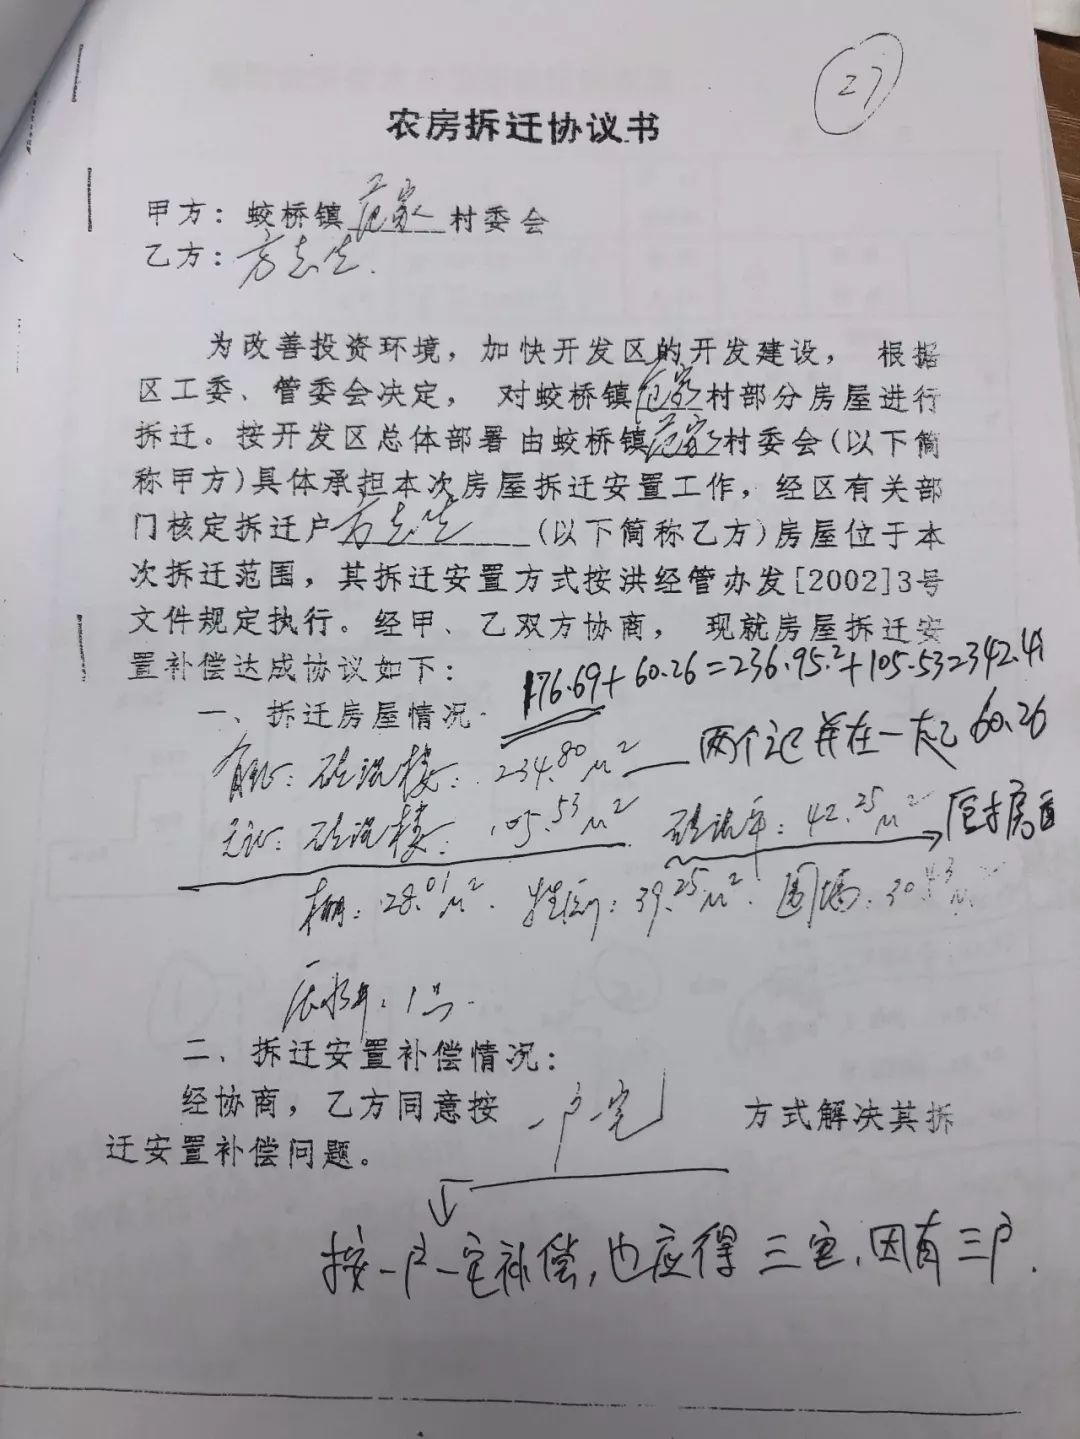 27
农房拆迁协议书
甲方：蛟桥镇范家村委会
乙方：方志生.
为改善投资环境，加快开发区的开发建设， 根据
区工委、管委会决定， 对蛟桥镇范家村部分房屋进行
拆迁。按开发区总体部署由蛟桥镇范家村委会(以下简
称甲方)具体承担本次房屋拆迁安置工作，经区有关部
门核定拆迁户方志生(以下简称乙方)房屋位于本
次拆迁范围，其拆迁安置方式按洪经管办发[2002]3号
文件规定执行。经甲、乙双方协商， 现就房屋拆迁安
置补偿达成协议如下：
176.69+60.26=236.95.²+105.53=342.4
一、拆迁房屋情况.
有证：砖混楼：234.80M² 两个记并在一起 60.26
无证：砖混楼：105.53M² 砖混平：42.25M² 后房
棚：28.01M². 牲间：39.25M². 围墙：30.43M
压水井：1号.
二、拆迁安置补偿情况：
经协商，乙方同意按 一户一宅 方式解决其拆
迁安置补偿问题。
按一户一宅补偿，也应得三宅，因有三户.